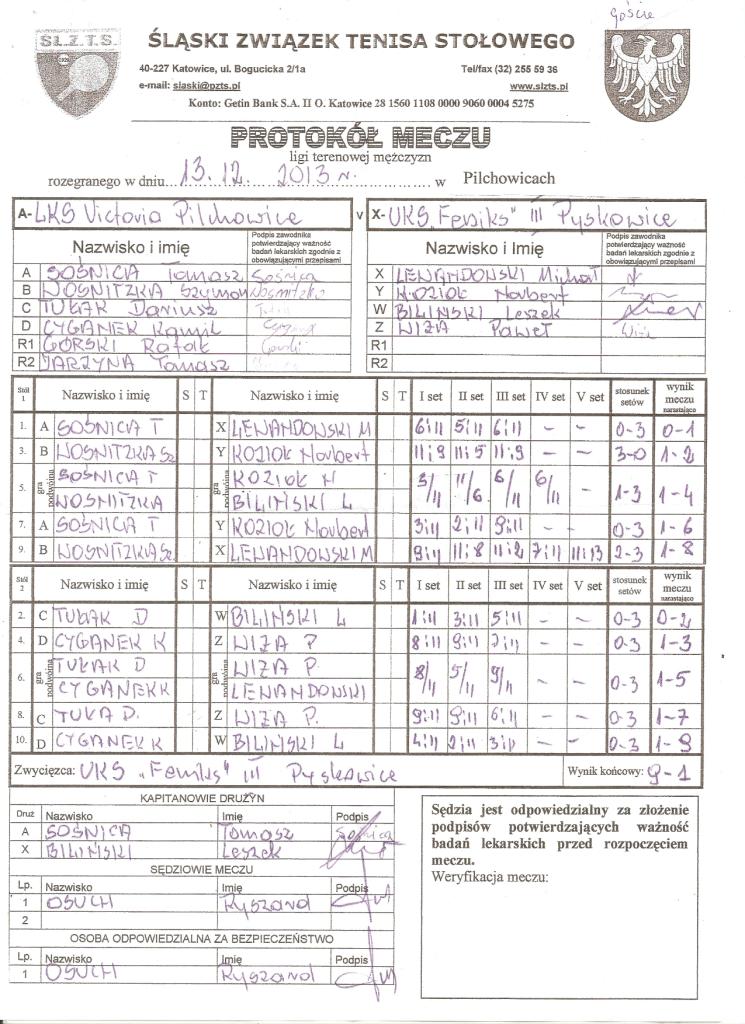 goście
ŚL.Z.T.S.
ŚLĄSKI ZWIĄZEK TENISA STOŁOWEGO
40-227 Katowice, ul. Bogucicka 2/1a Tel/fax (32) 255 59 36
e-mail: slaski@pzts.pl www.slzts.pl
Konto: Getin Bank S.A. II O. Katowice 28 1560 1108 0000 9060 0004 5275
PROTOKÓŁ MECZU
ligi terenowej mężczyzn
rozegranego w dniu 13.12.2013 r. w Pilchowicach
A- LKS Victoria Pilchowice v X- UKS „Feniks" III Pyskowice
Nazwisko i imię Podpis zawodnika potwierdzający ważność badań lekarskich zgodnie z obowiązującymi przepisami Nazwisko i Imię Podpis zawodnika potwierdzający ważność badań lekarskich zgodnie z obowiązującymi przepisami
A SOŚNICA Tomasz Sośnica X LEWANDOWSKI Michał
B WOSNITZKA Szymon Wosnitzka Y KOZIOŁ Norbert
C TUŁAK Dariusz W BILIŃSKI Leszek
D CYGANEK Kamil Z WIZA Paweł
R1 GÓRSKI Rafał R1
R2 JARZYNA Tomasz R2
Stół 1 Nazwisko i imię S T Nazwisko i imię S T I set II set III set IV set V set stosunek setów wynik meczu narastająco
1. A SOŚNICA T X LEWANDOWSKI M 6:11 5:11 6:11 - - 0-3 0-1
3. B WOSNITZKA Sz Y KOZIOŁ Norbert 11:9 11:5 11:9 - - 3-0 1-2
5. gra podwójna SOŚNICA T gra podwójna KOZIOŁ N 3/11 11/6 6/11 6/11 - 1-3 1-4
WOSNITZKA BILIŃSKI L
7. A SOŚNICA T Y KOZIOŁ Norbert 3:11 2:11 9:11 - - 0-3 1-6
9. B WOSNITZKA Sz X LEWANDOWSKI M 9:11 11:8 11:2 7:11 11:13 2-3 1-8
Stół 2 Nazwisko i imię S T Nazwisko i imię S T I set II set III set IV set V set stosunek setów wynik meczu narastająco
2. C TUŁAK D W BILIŃSKI L 1:11 3:11 5:11 - - 0-3 0-2
4. D CYGANEK K Z WIZA P 8:11 9:11 7:11 - - 0-3 1-3
6. gra podwójna TUŁAK D gra podwójna WIZA P. 8/11 5/11 9/11 - - 0-3 1-5
CYGANEK K LEWANDOWSKI
8. C TUŁA D. Z WIZA P. 9:11 9:11 6:11 - - 0-3 1-7
10. D CYGANEK K W BILIŃSKI L 4:11 2:11 3:11 - - 0-3 1-9
Zwycięzca: UKS „Feniks" III Pyskowice Wynik końcowy: 9-1
KAPITANOWIE DRUŻYN
Druż Nazwisko Imię Podpis
A SOŚNICA Tomasz Sośnica
X BILIŃSKI Leszek
SĘDZIOWIE MECZU
Lp. Nazwisko Imię Podpis
1 OSUCH Ryszard
2
OSOBA ODPOWIEDZIALNA ZA BEZPIECZEŃSTWO
Lp. Nazwisko Imię Podpis
1 OSUCH Ryszard
Sędzia jest odpowiedzialny za złożenie
podpisów potwierdzających ważność
badań lekarskich przed rozpoczęciem
meczu.
Weryfikacja meczu: